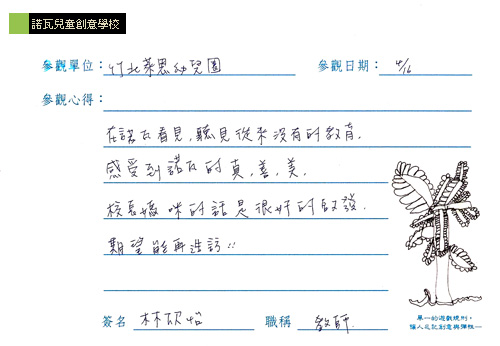 諾瓦兒童創意學校
參觀單位：竹北萊恩幼兒園 參觀日期：4/16
參觀心得：
在諾瓦看見,聽見從來沒有的教育.
感受到諾瓦的真,善,美.
校長媽咪的話是很好的啟發.
期望能再造訪::
簽名 林欣怡 職稱 教師.
單一的遊戲規則,
讓人忘記創意與彈性